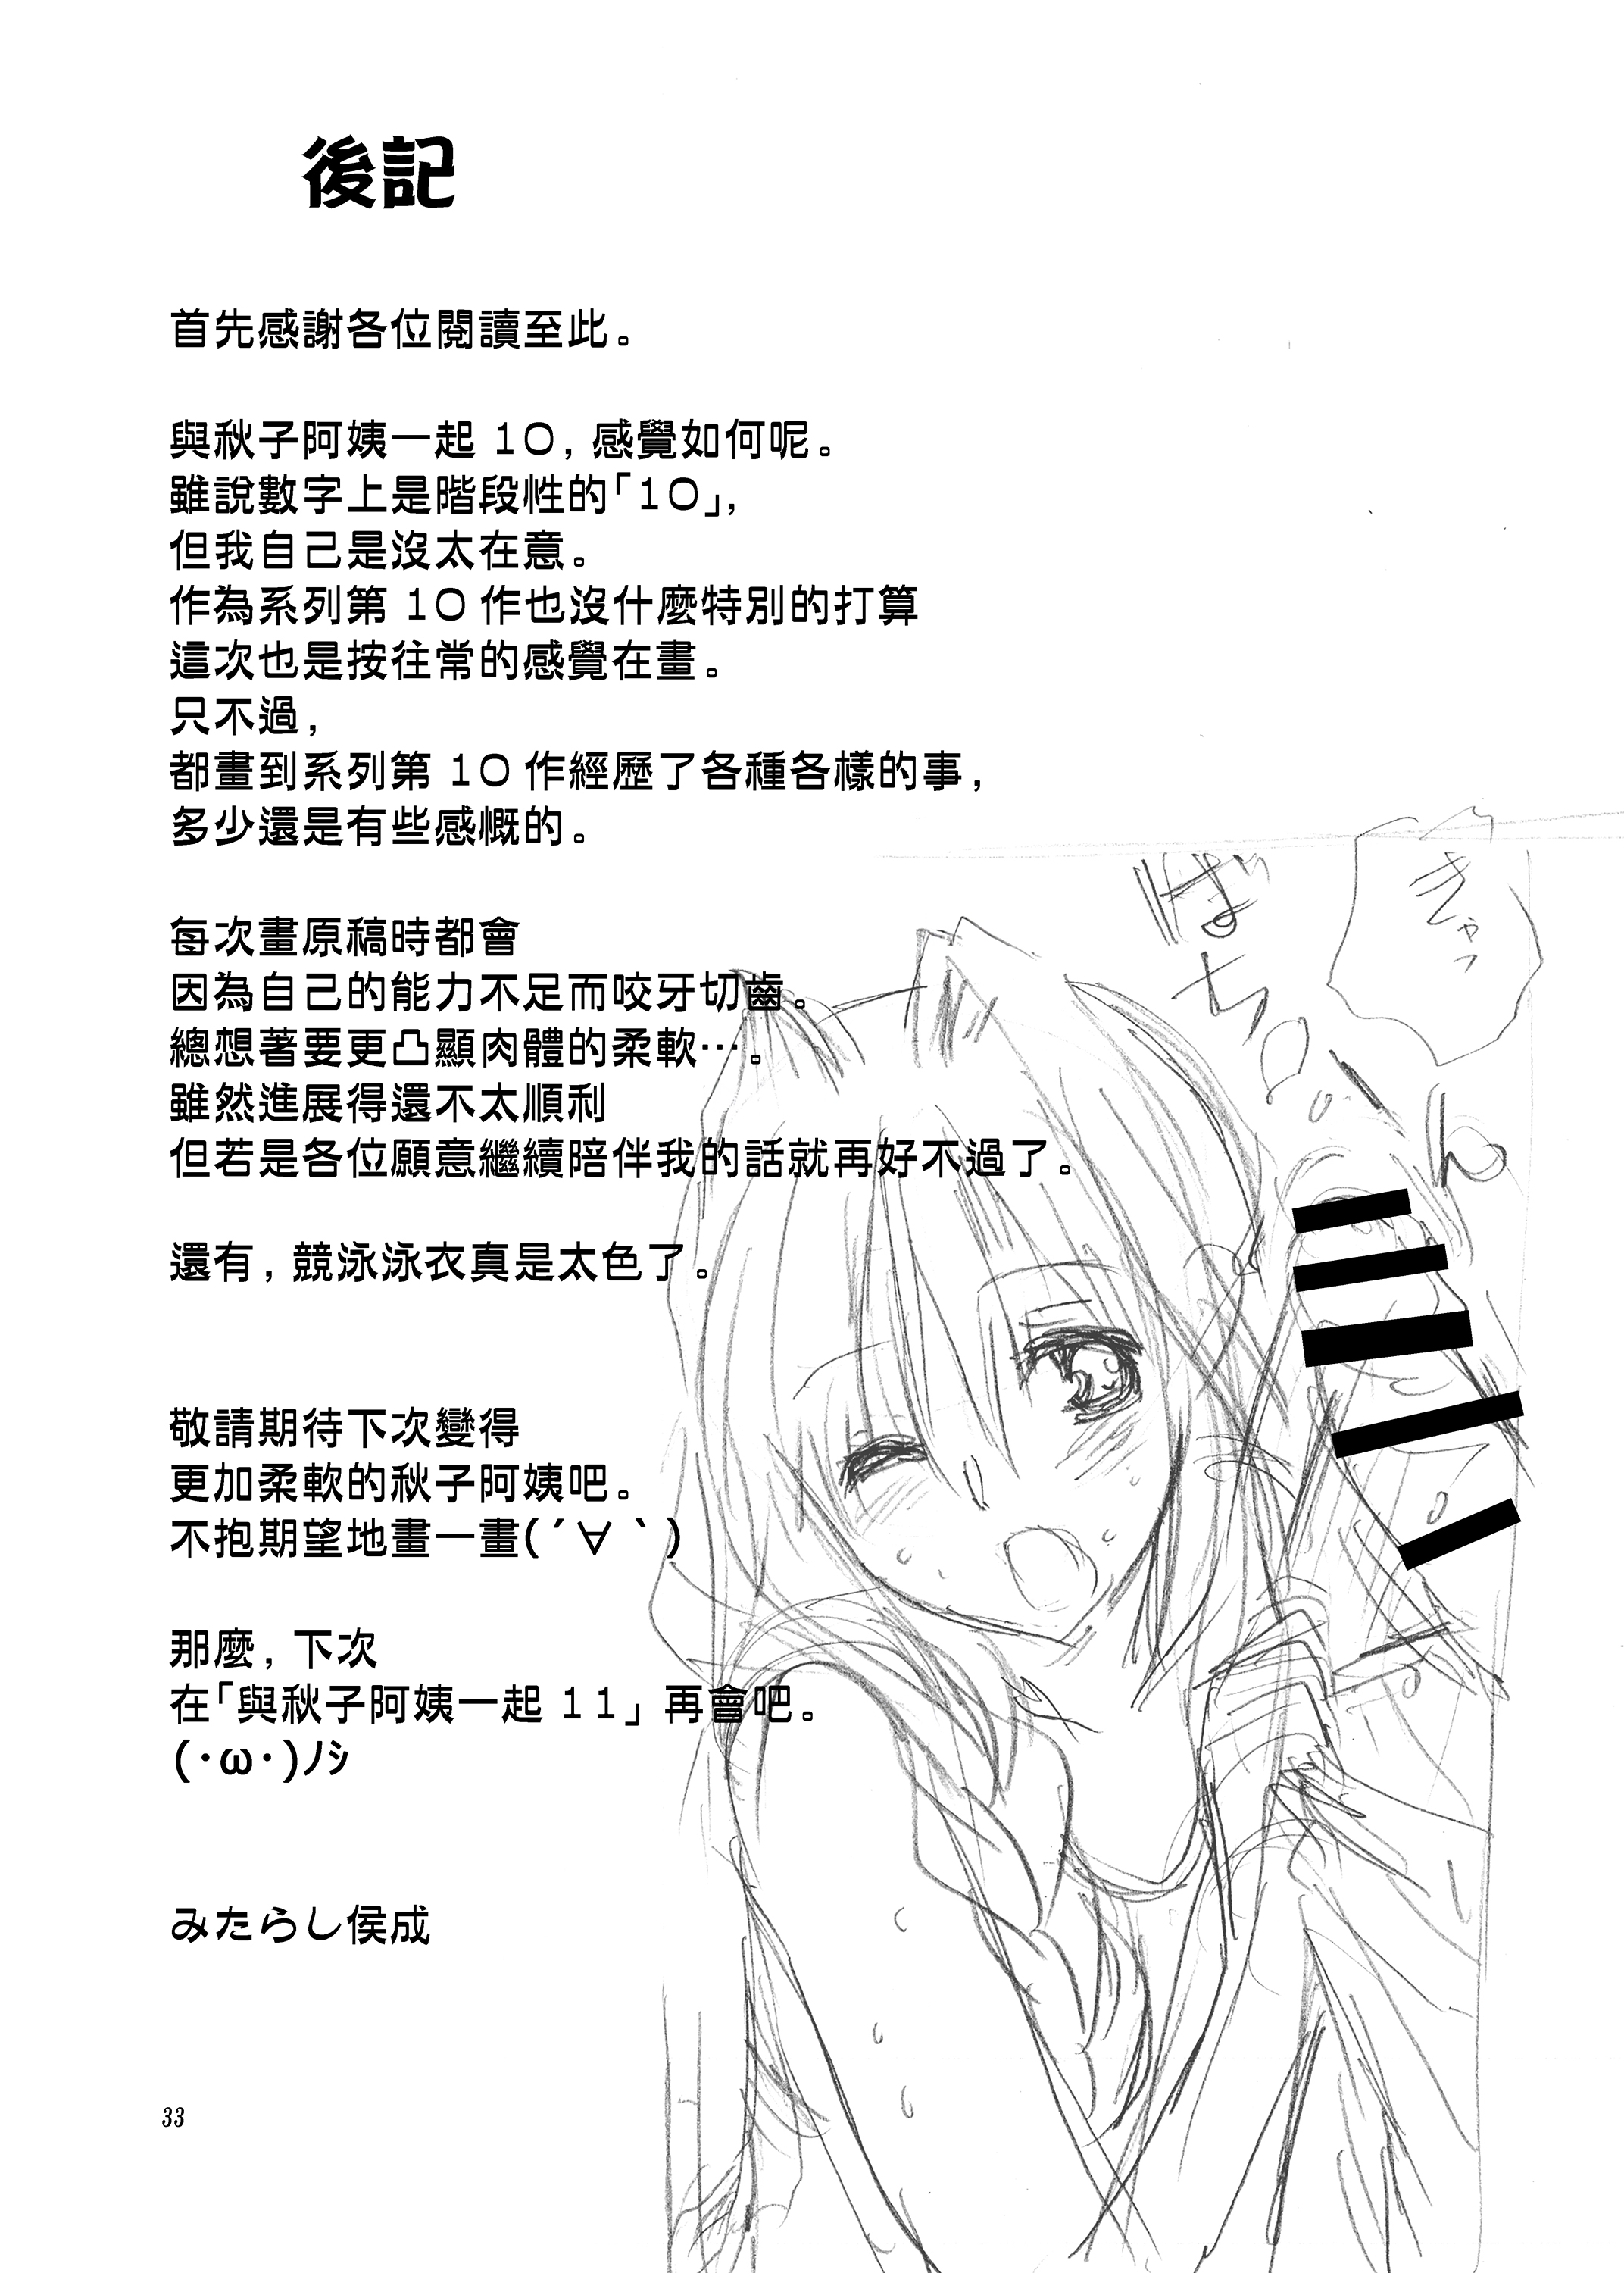 後記
首先感謝各位閱讀至此。
與秋子阿姨一起 10, 感覺如何呢。
雖說數字上是階段性的「10」,
但我自己是沒太在意。
作為系列第 10 作也沒什麼特別的打算
這次也是按往常的感覺在畫。
只不過,
都畫到系列第 10 作經歷了各種各樣的事,
多少還是有些感慨的。
每次畫原稿時都會
因為自己的能力不足而咬牙切齒。
總想著要更凸顯肉體的柔軟…。
雖然進展得還不太順利
但若是各位願意繼續陪伴我的話就再好不過了。
還有, 競泳泳衣真是太色了。
敬請期待下次變得
更加柔軟的秋子阿姨吧。
不抱期望地畫一畫(´∀｀)
那麼, 下次
在「與秋子阿姨一起 11」再會吧。
(・ω・)ノシ
みたらし侯成
33
きゃっ